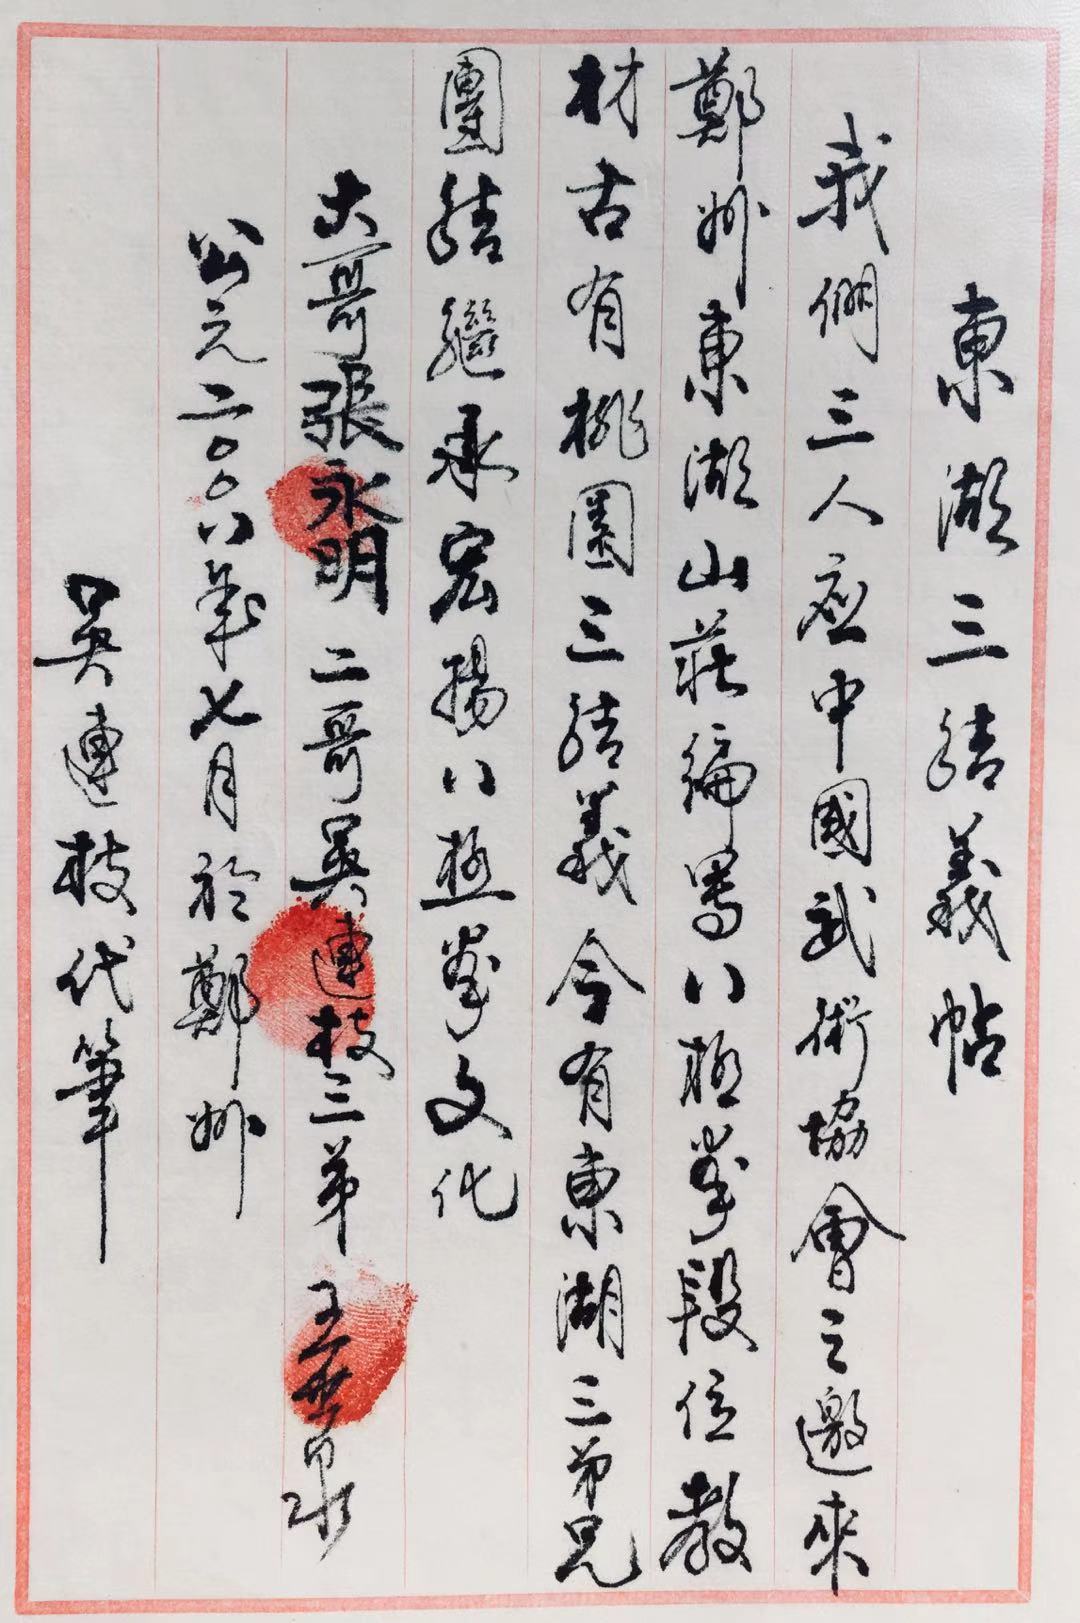 東湖三結義帖
我們三人应中國武術協會之邀来
鄭州東湖山莊編寫八極拳段位教
材古有桃園三結義今有東湖三弟兄
團結繼承宏揚八極拳文化
大哥張永明二哥吴連枝三弟王世泉
公元二〇〇八年七月於鄭州
吴連枝代筆